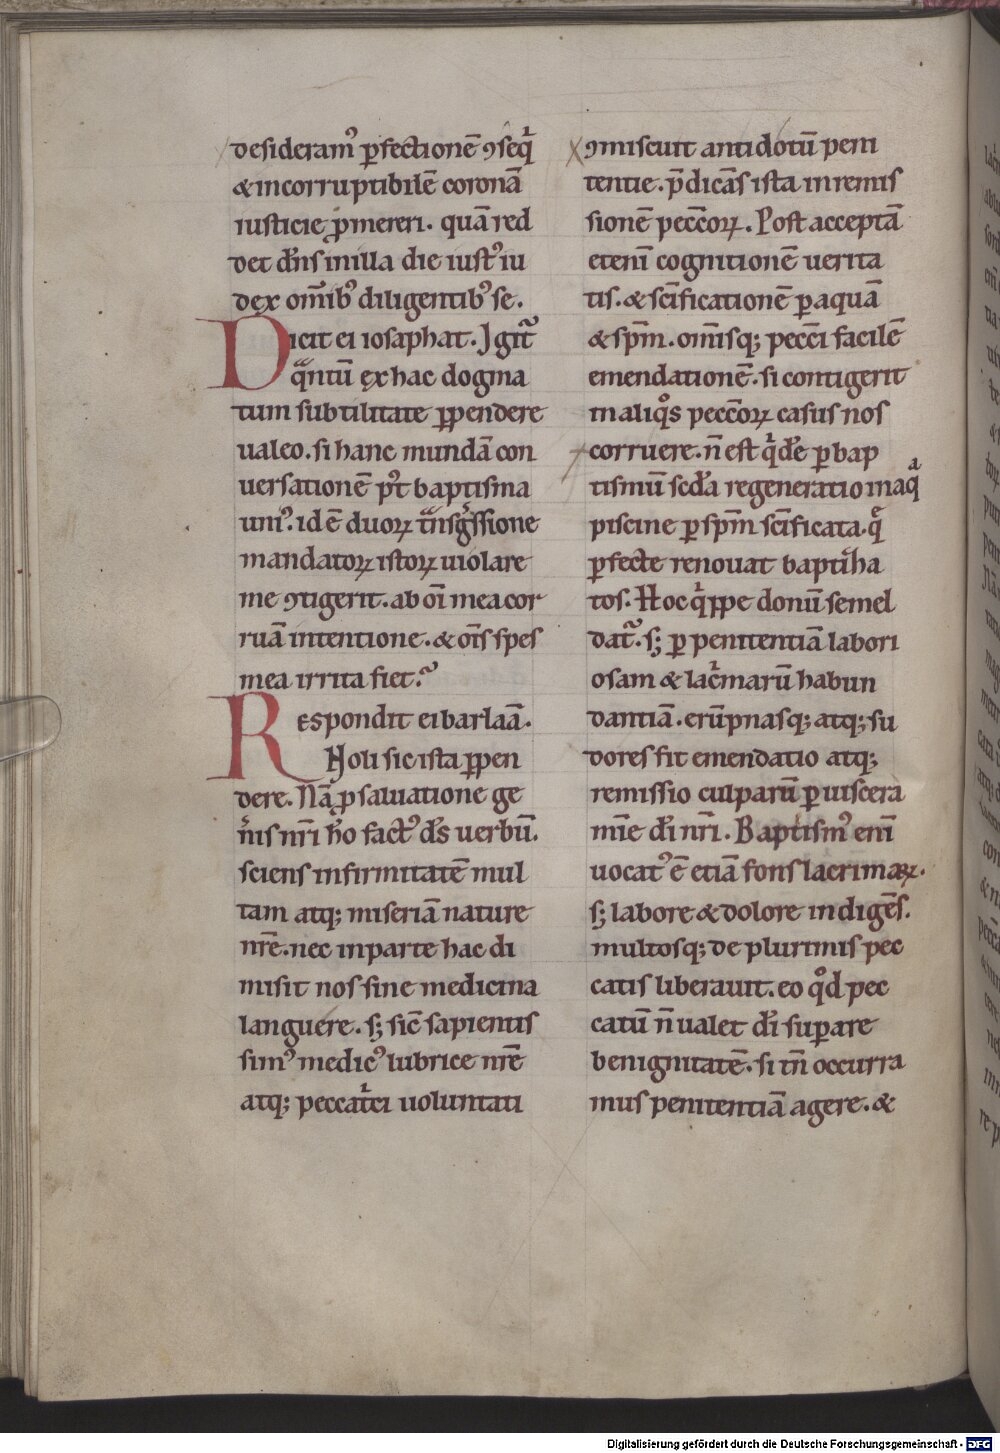 desideram᷒ ꝑfectionē ꝯseqͥ
&incorruptibilē coronā
iusticie ꝓmereri. quā red
det dn̄s inilla die iust᷒ iu
dex om̄ib᷒ diligentib᷒ se.
Dicit ei iosaphat. Igit᷑
qͣntū ęx hac dogma
tum subtilitate ꝑpendere
ualeo. si hanc mundā con
uersationē pꝰt baptisma
uni᷒. id ē duoꝝ tͣnsgͤssione
mandatoꝝ istoꝝ uiolare
me ꝯtigerit. ab oī mea cor
ruā intentione. & oīs spes
mea irrita fiet.
Respondit ei barlaā.
Noli sic ista ꝑpen
dere. Nā ꝓ saluatione ge
nͥis nr̄i hͦo fact᷒ ds̄ uerbū.
sciens infirmitatē mul
tam atq; miseriā nature
nr̄e. nec inparte hac di
misit nos sine medicina
languere. s; sic̄ sapientis
sim᷒ medic᷒ lubrice nr̄e
atq; peccatͥci uoluntati
ꝯmiscuit antidotū peni
tentie. p̄dicās ista inremis
sionē pecc̄oꝝ. Post acceptā
etenī cognitionē uerita
tis. & sc̄ificationē ꝑ aquā
& spm̄. om̄isq; pecc̄i facilē
emendationē. si contigerit
in aliqͦs pecc̄oꝝ casus nos
corruere. n̄ est qͥdē ꝑ bap
tismū sc̄da regeneratio inaqͣ
piscine ꝑ spm̄ sc̄ificata. qͤ
ꝑfecte renouat baptiha
tos. Hoc qͥppe donū semel
dat᷑. s; ꝑ penitentiā labori
osam & lacͥmarū habun
dantiā. erūpnasq; atq; su
dores fit emendatio atq;
remissio culparū ꝑ uiscera
mīe dī nr̄i. Baptism᷒ enī
uocat᷒ ē etiā fons lacrimaꝝ.
s; labore & dolore indigēs.
multosq; de plurimis pec
catis liberauit. eo qͦd pec
catū n̄ ualet dī suꝑare
benignitatē. si tn̄ occurra
mus penitentiā agere. &
Digitalisierung gefördert durch die Deutsche Forschungsgemeinschaft - DFG